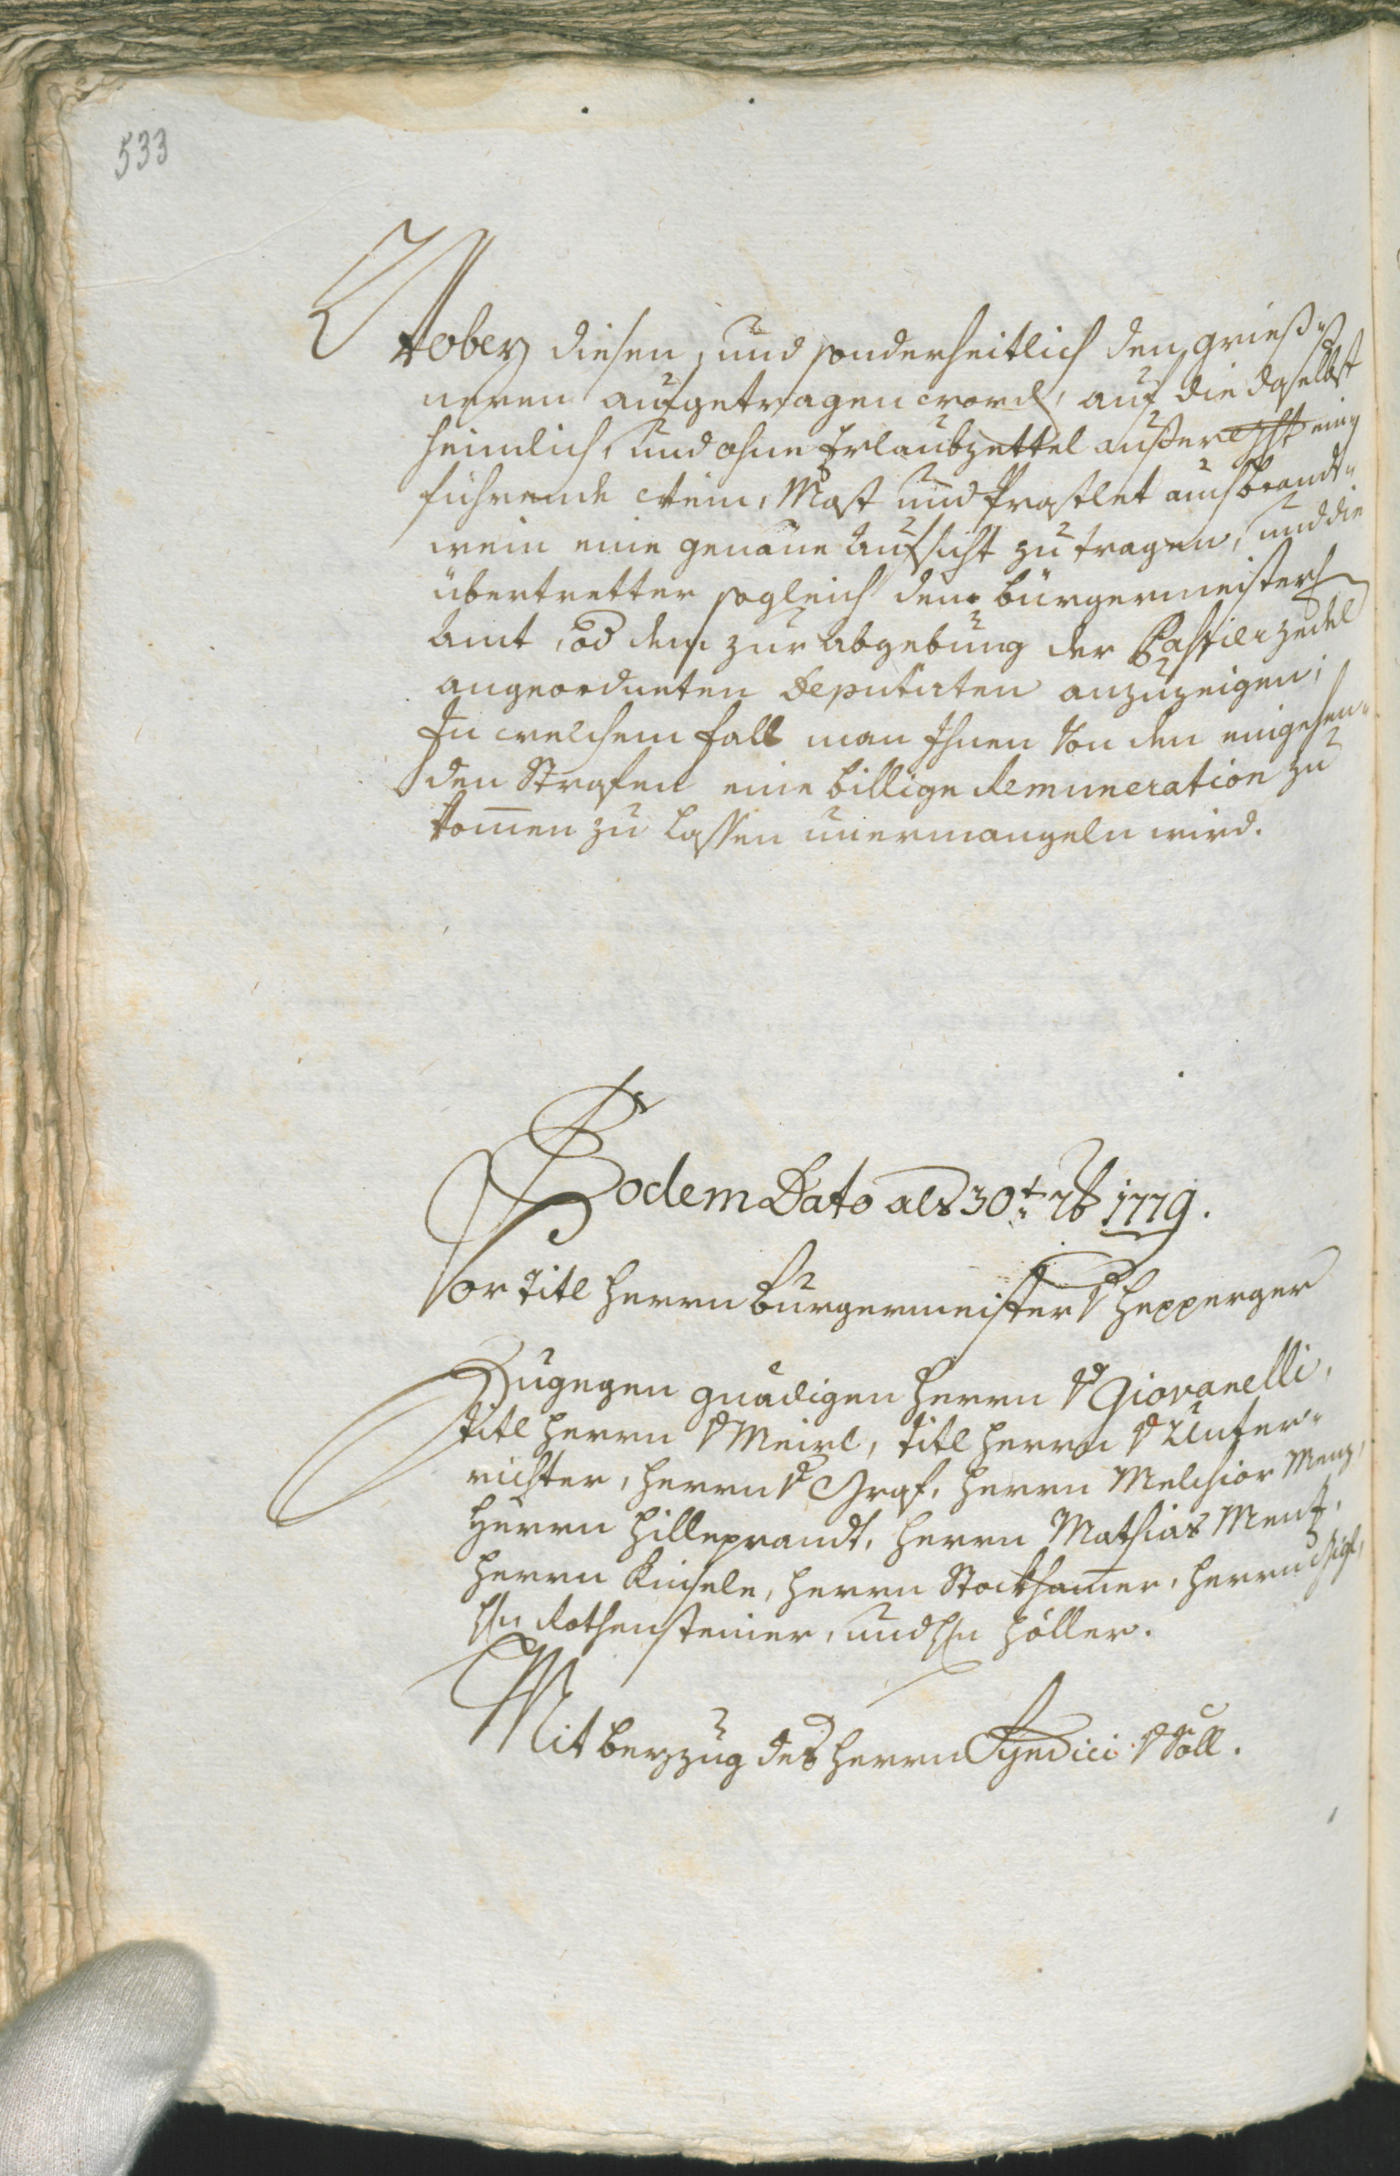 533
Wobey diesen, und sonderheitlich den grieß„
neren aufgetragen word, auf die daselbst
heimlich, und ohne Erlaubzettel außer einz
führende Wein, Most und Prastlet auch brandt„
wein eine genaue Aufsicht zu tragen, und die
übertretter sogleich dem bürgermeister
Amt, od dem zur abgebung der Paßier zedel
angeordneten Deputirten anzuzeigen,
In welchem fall man Ihnen von den eingehen„
den Strafen eine billige Remuneration zu
kommen zu lassen unermangeln wird.
Eodem Dato als 30t 7b 1779.
Vor Titl herrn bürgermeister v hepperger
Zugegen gnädigen herrn v Giovanelli,
titl herrn v Meirl, titl herrn v Unter„
richter, herrn v Graf, herrn Melchior Menz,
Herrn hilleprandt, herrn Mathias Menz,
herrn Kinsele, herrn Stockhamer, herrn
hn Rothensteiner, und hn höller.
Mit beyzug des herrn Syndici v Söll.